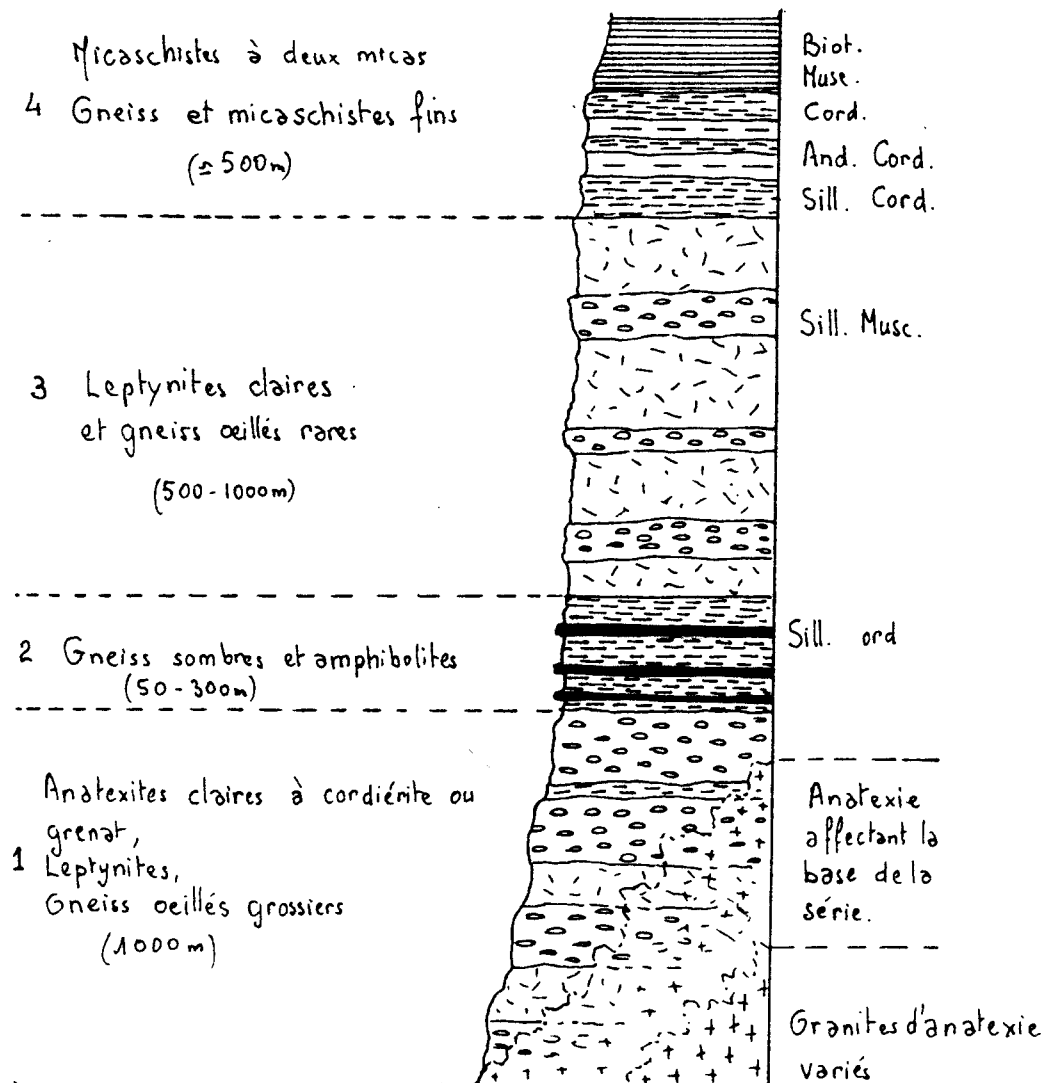 Micaschistes à deux micas
4 Gneiss et micaschistes fins
(≃ 500m)
3 Leptynites claires
et gneiss œillés rares
(500-1000m)
2 Gneiss sombres et amphibolites
(50-300m)
Anatexites claires à cordiérite ou
grenat,
1 Leptynites,
Gneiss œillés grossiers
(1000m)
Biot.
Musc.
Cord.
And. Cord.
Sill. Cord.
Sill. Musc.
Sill. ord
Anatexie
affectant la
base de la
série.
Granites d'anatexie
variés